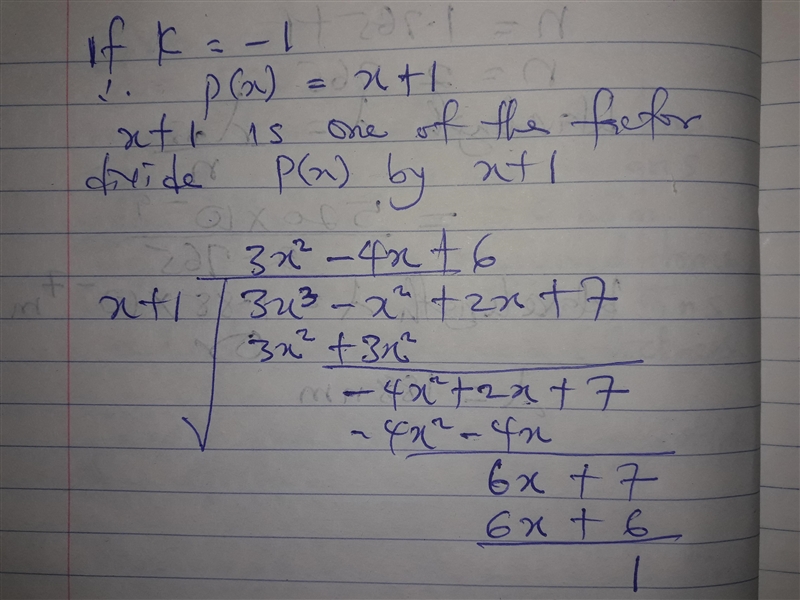 If K = -1
∴ P(x) = x+1
x+1 is one of the factor
divide P(x) by x+1
3x² - 4x + 6
x+1 √ 3x³ - x² + 2x + 7
3x² + 3x²
- 4x² + 2x + 7
- 4x² - 4x
6x + 7
6x + 6
1